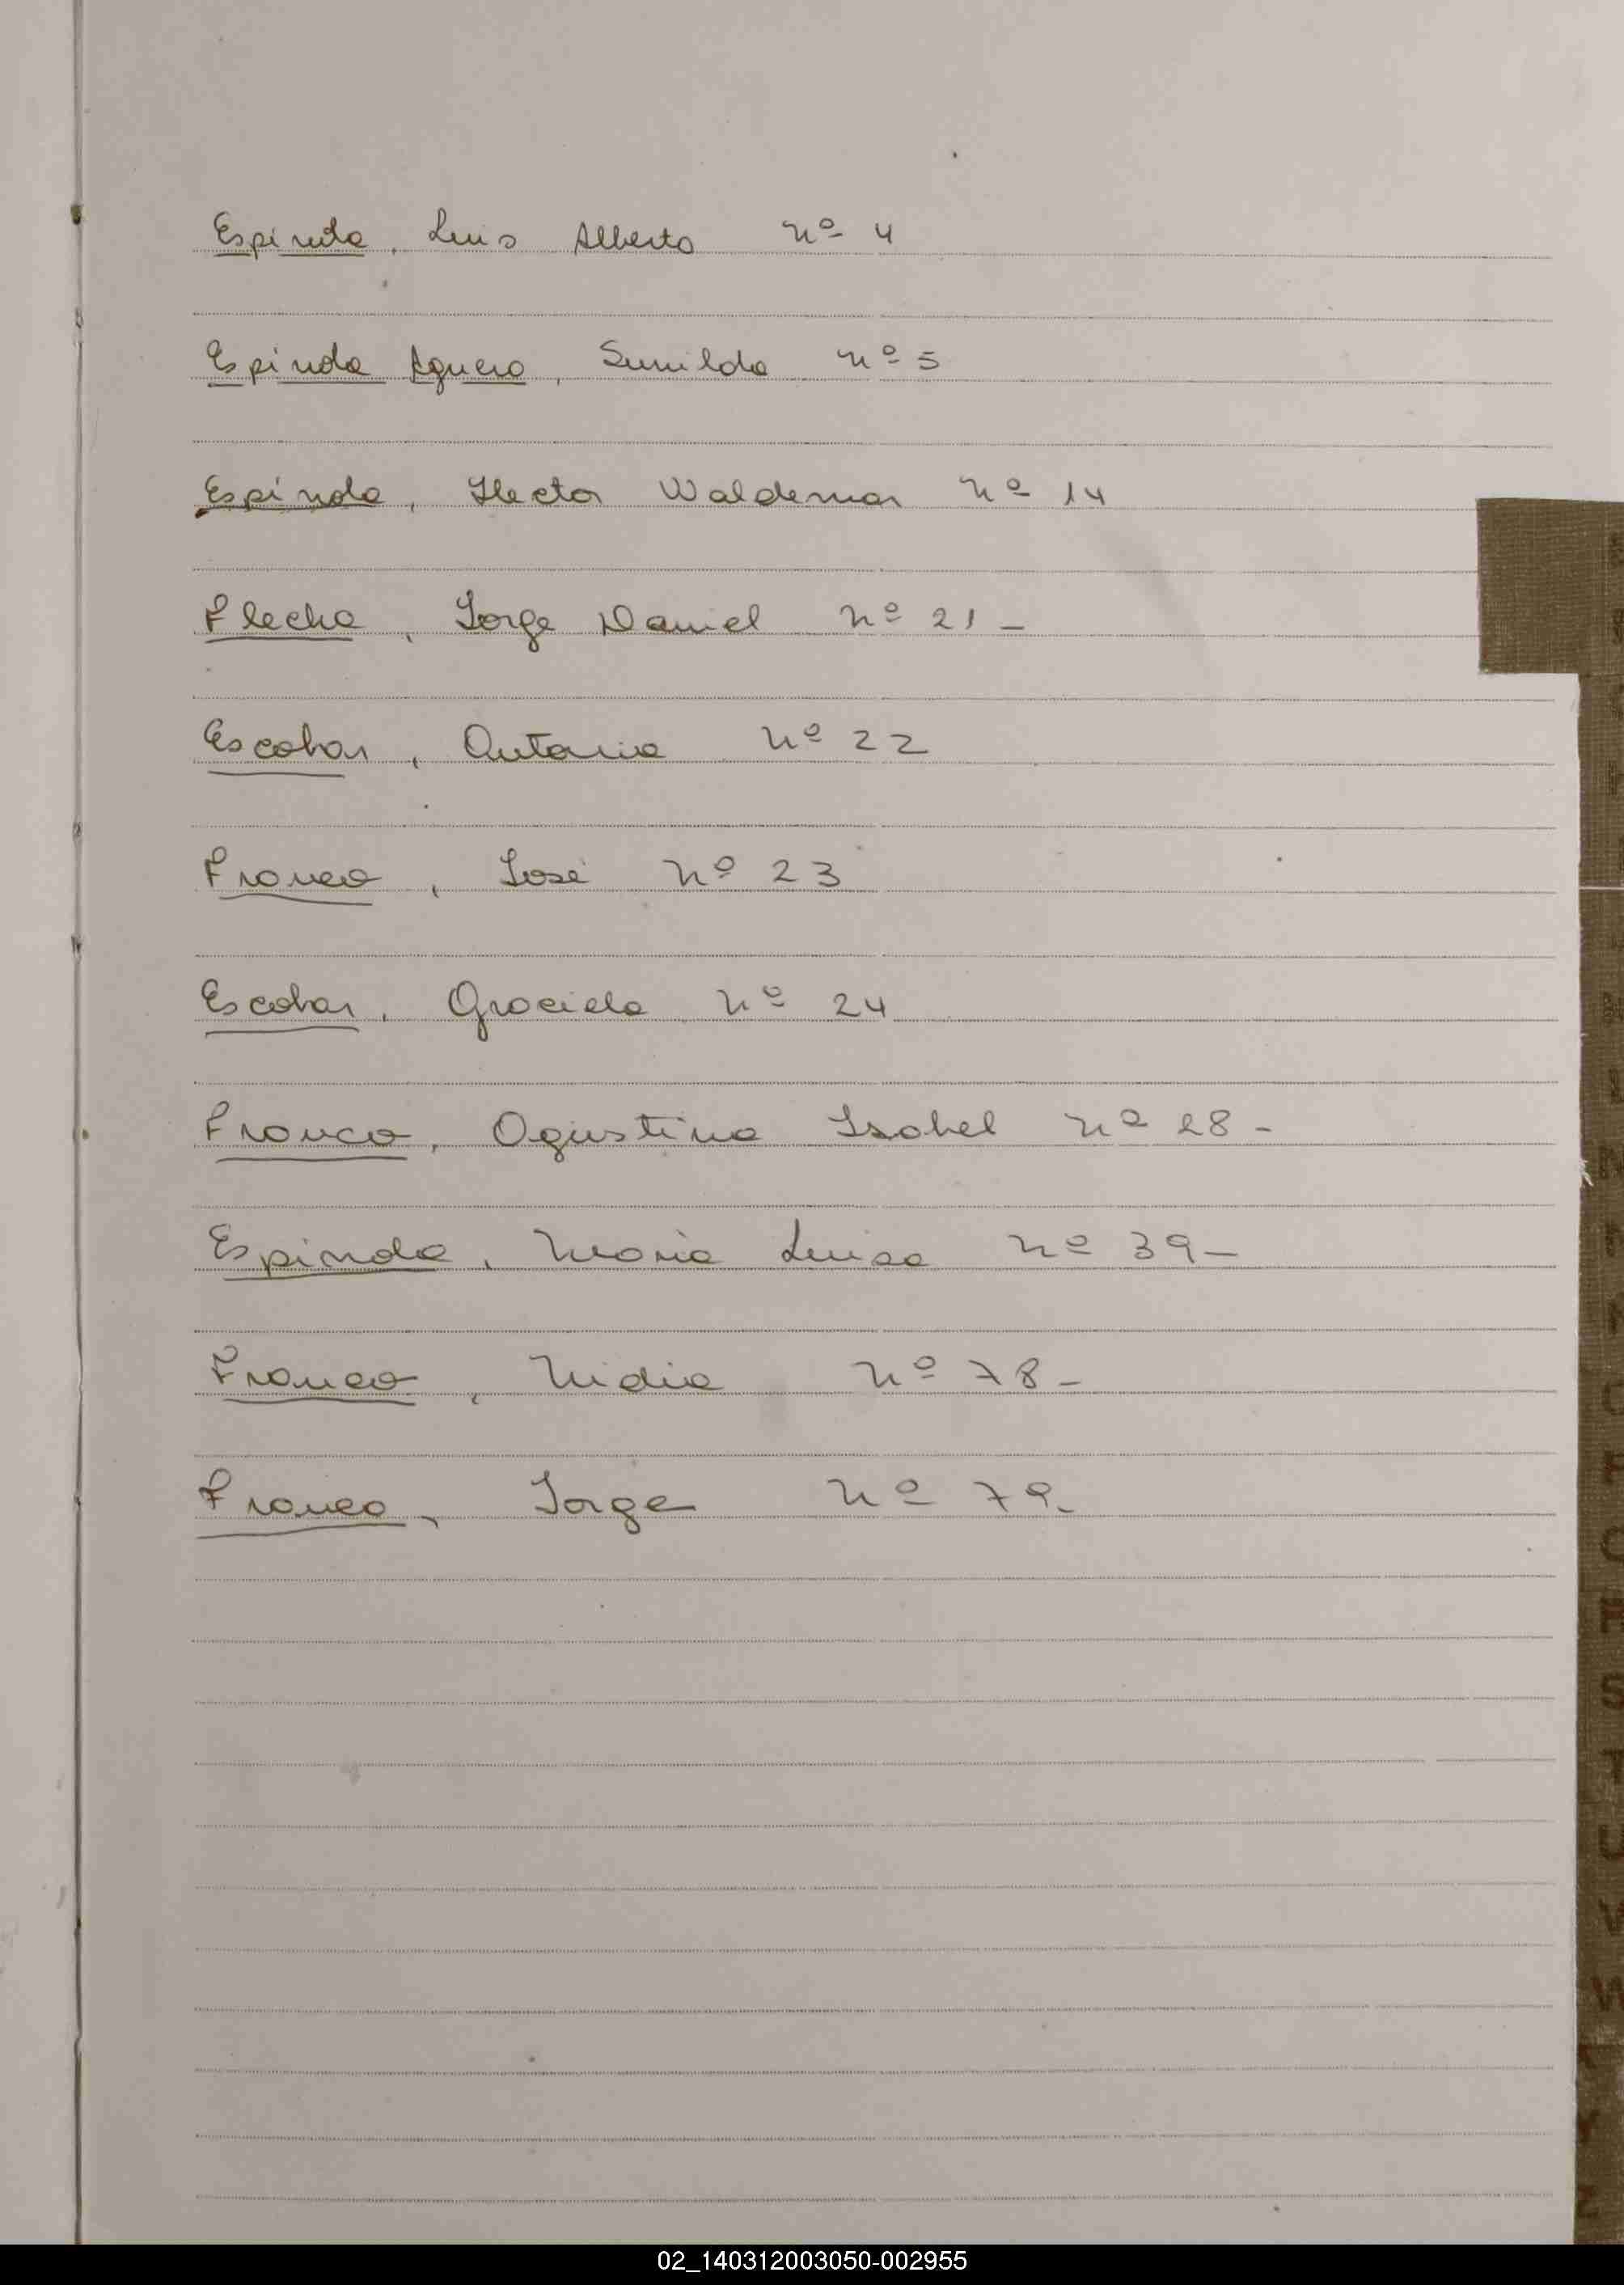 Espinola, Luis Alberto nº 4
Espinola Aguero, Sunilda nº 5
Espinola, Hector Waldemar nº 14
Flecha, Jorge Daniel nº 21 -
Escobar, Antonia nº 22
Franco, José nº 23
Escobar, Graciela nº 24
Franco, Agustina Isabel nº 28 -
Espinola, Maria Luisa nº 39 -
Franco, Nidia nº 78 -
Franco, Jorge nº 79 -
02_140312003050-002955